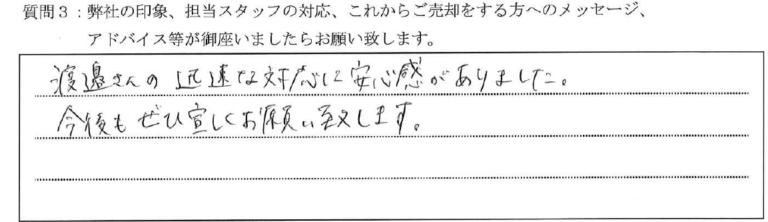 質問３：弊社の印象、担当スタッフの対応、これからご売却をする方へのメッセージ、
アドバイス等が御座いましたらお願い致します。
渡邉さんの迅速な対応に安心感がありました。
今後もぜひ宜しくお願い致します。